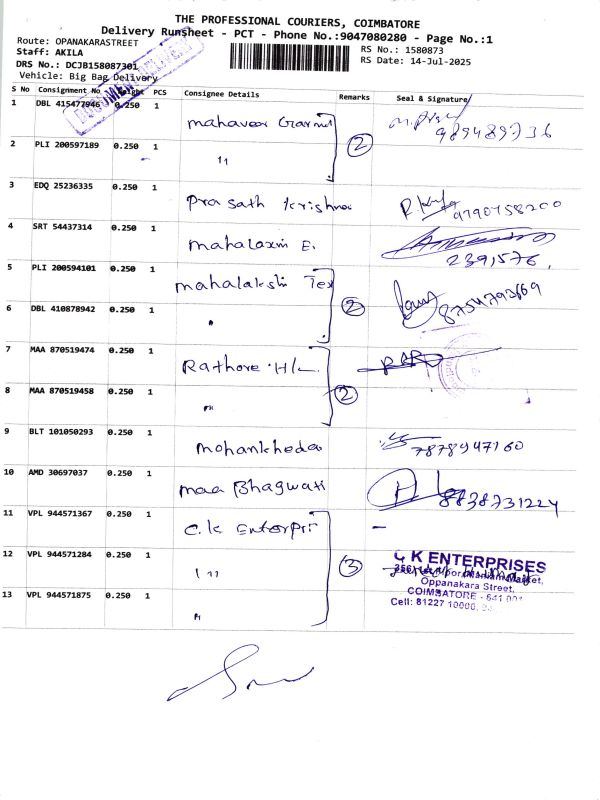 THE PROFESSIONAL COURIERS, COIMBATORE
Delivery Runsheet - PCT - Phone No.:9047080280 - Page No.:1
Route: OPANAKARASTREET
Staff: AKILA
DRS No.: DCJB158087301
Vehicle: Big Bag Delivery
RS No.: 1580873
RS Date: 14-Jul-2025
S No Consignment No Weight PCS Consignee Details Remarks Seal & Signature
1 DBL 415477946 0.250 1 mahaveer Garmt 9894897336
2 PLI 200597189 0.250 1 " 2
3 EDQ 25236335 0.250 1 Prasath krishna 9790758200
4 SRT 54437314 0.250 1 mahalaxmi E. 2391576
5 PLI 200594101 0.250 1 mahalakshi Tex 8754793669
6 DBL 410878942 0.250 1 " 2
7 MAA 870519474 0.250 1 Rathore H/L
8 MAA 870519458 0.250 1 " 2
9 BLT 101050293 0.250 1 mohankheda 7878947160
10 AMD 30697037 0.250 1 maa Bhagwati 8838731224
11 VPL 944571367 0.250 1 C.K Enterpri -
12 VPL 944571284 0.250 1 " 3
13 VPL 944571875 0.250 1 "
C K ENTERPRISES
Market,
Oppanakara Street,
COIMBATORE - 641 001
Cell: 81227 10000,